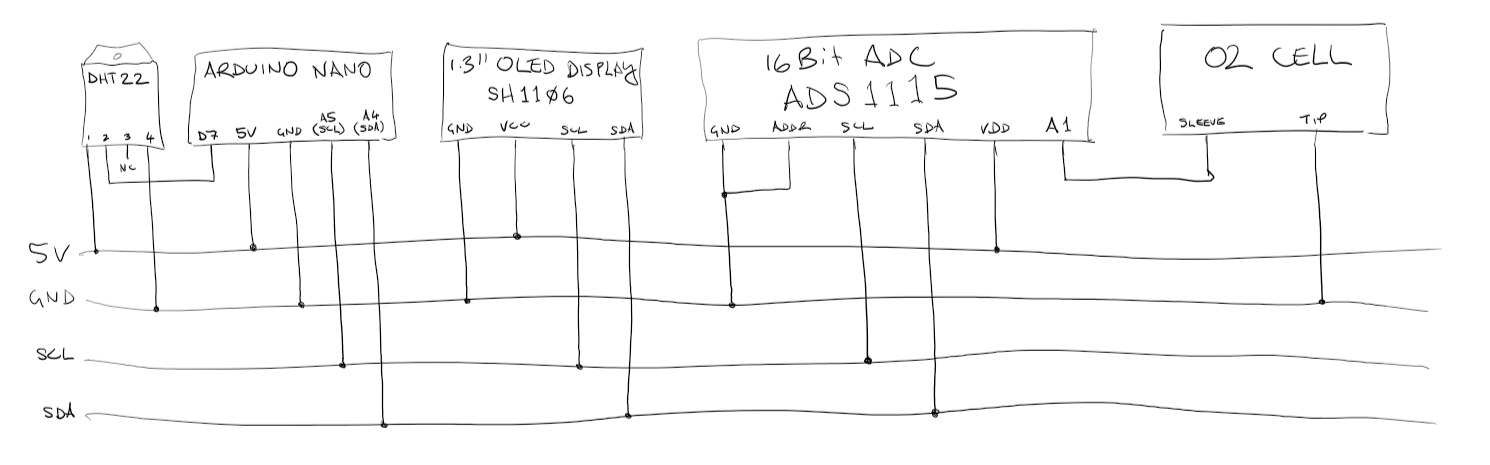 DHT22
1 2 3 4
NC
ARDUINO NANO
D7 5V GND A5 (SCL) A4 (SDA)
1.3" OLED DISPLAY
SH1106
GND VCC SCL SDA
16Bit ADC
ADS1115
GND ADDR SCL SDA VDD A1
O2 CELL
SLEEVE TIP
5V
GND
SCL
SDA